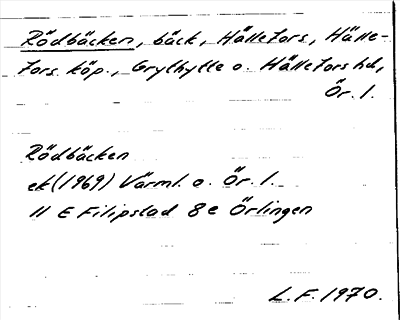 Rödbäcken, bäck, Hällefors, Hälle-
fors köp., Grythytte o. Hällefors hd,
Ör. l.
Rödbäcken
ek (1969) Värml. o. Ör. l.
11 E Filipstad 8e Örlingen
L. F. 1970.